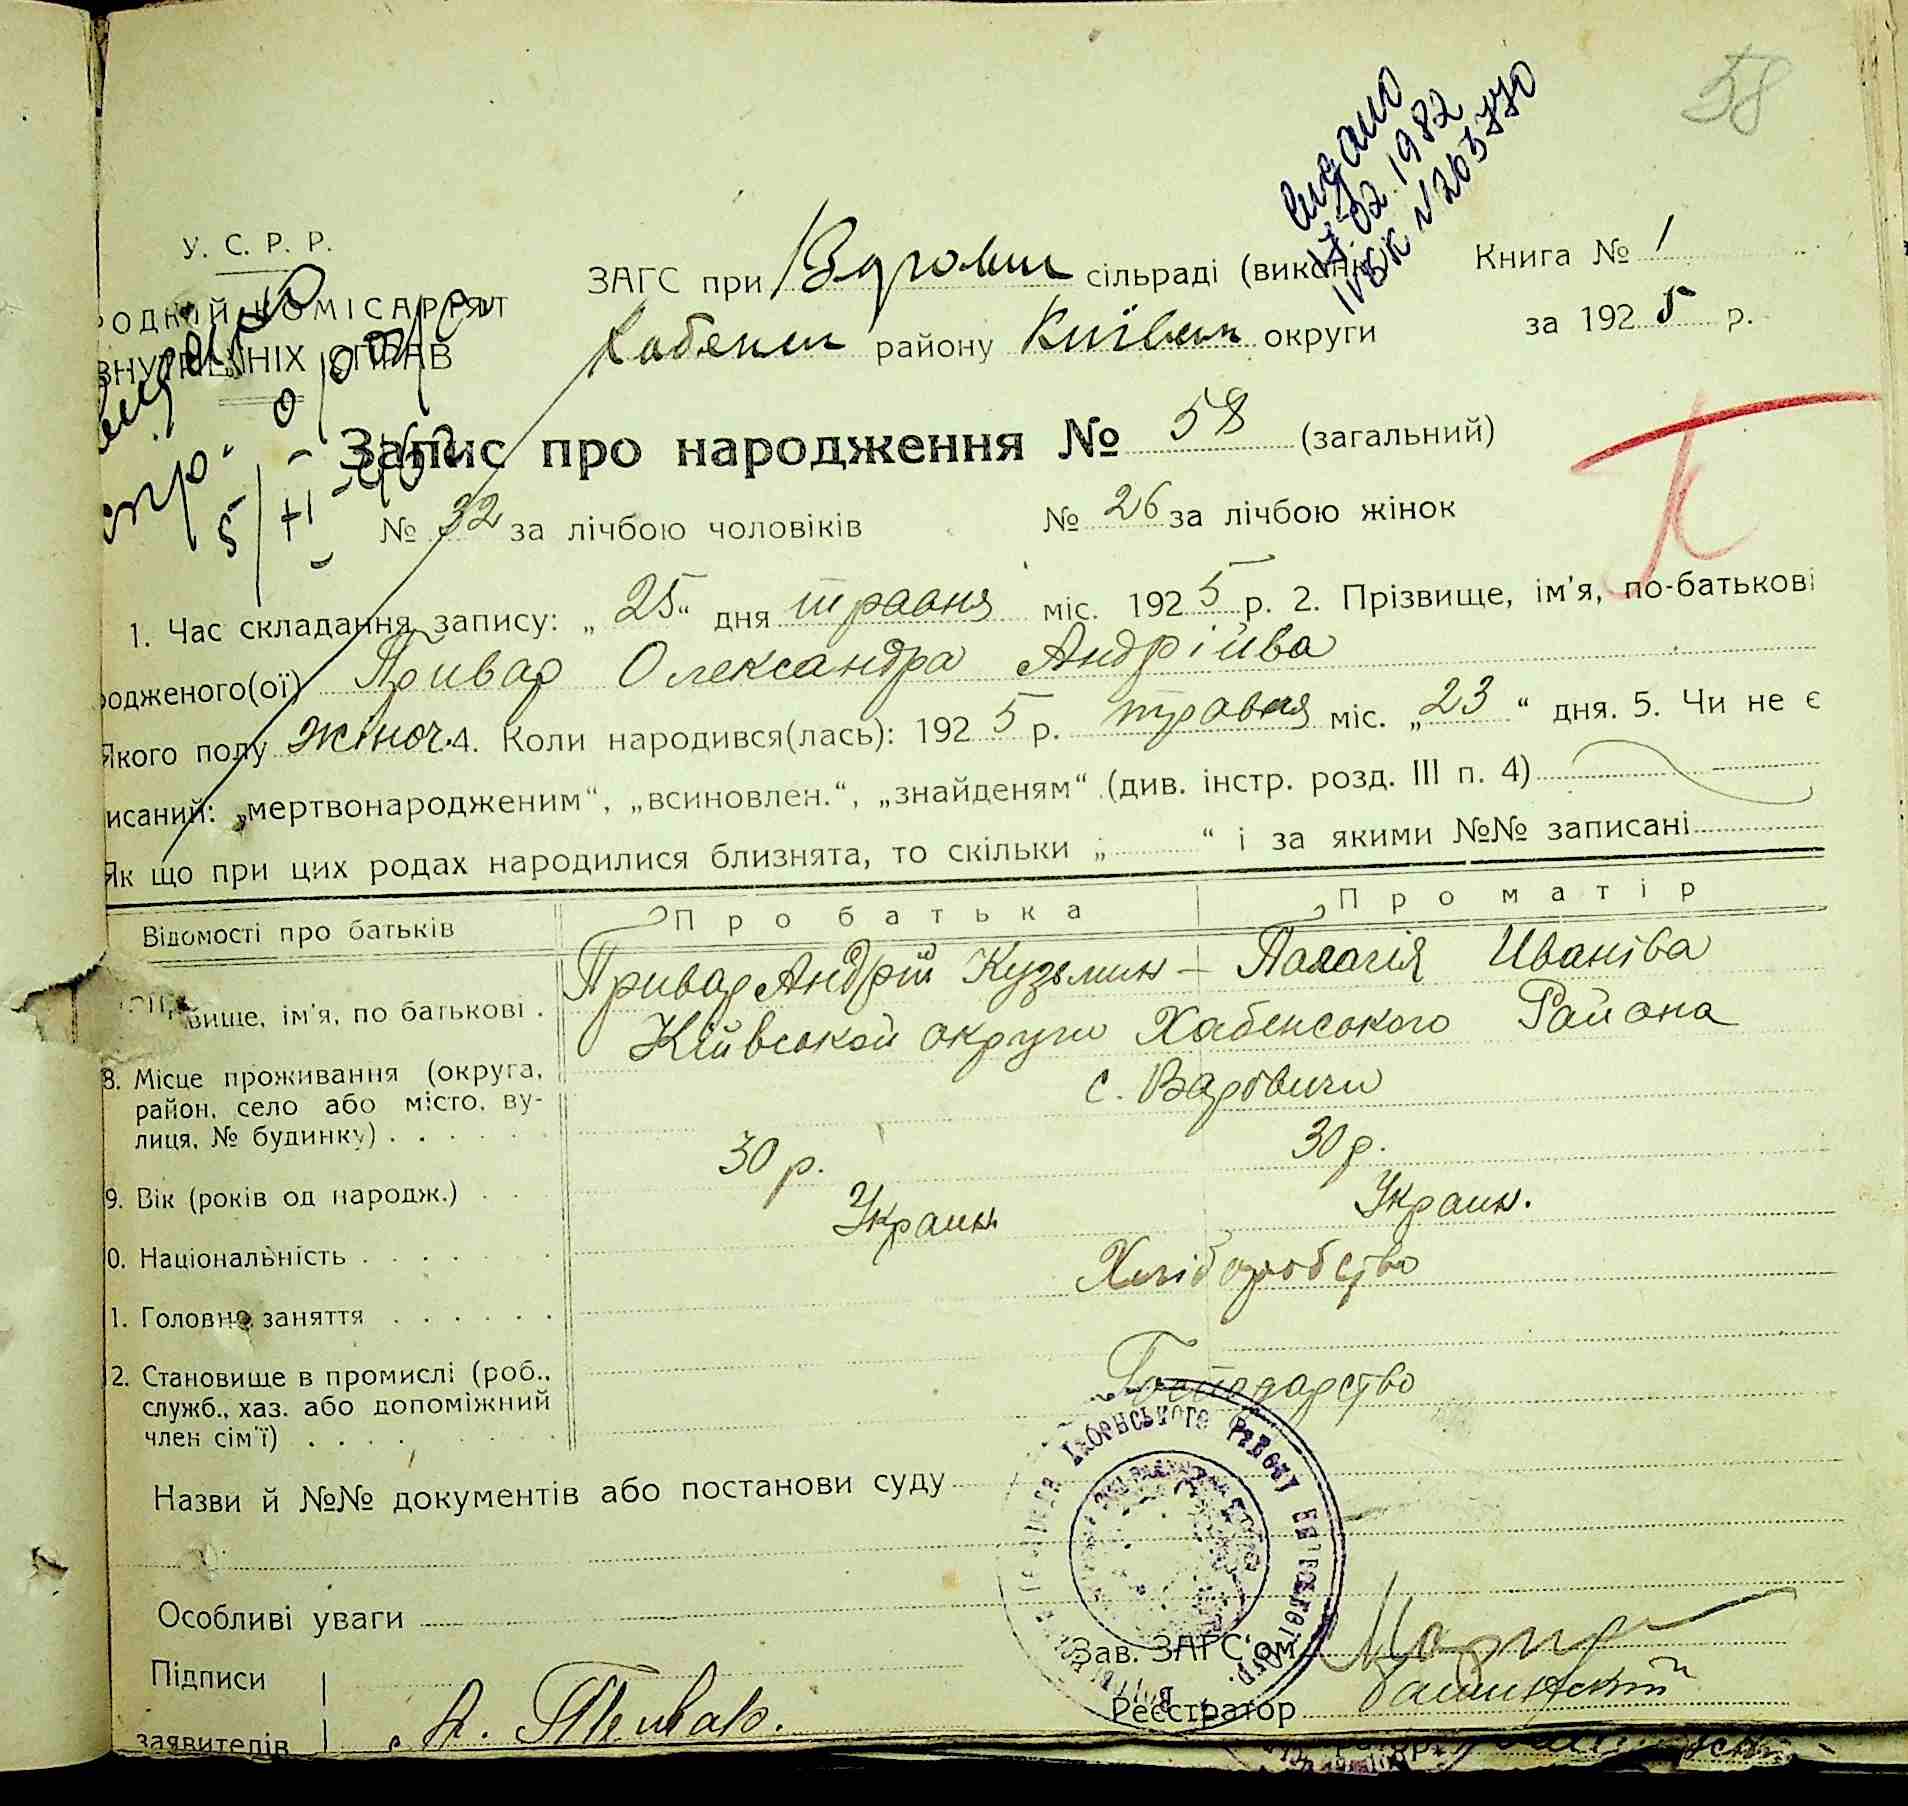 58
видано
17.02.1982
ІѴБК №263770
У. С. Р. Р.
РОДНИЙ КОМІСАРІЯТ
ВНУТРІШНІХ СПРАВ
ЗАГС при Вдрович сільраді (викон
Книга № 1
Хабенськ району Київськ округи
за 192 5 р.
Запис про народження № 58 (загальний)
№ 32 за лічбою чоловіків № 26 за лічбою жінок
1. Час складання запису: „ 25 “ дня травня міс. 192 5 р. 2. Прізвище, ім’я, по-батькові
родженого(ої) Привар Олександра Андріїва
Якого полу жіноч. 4. Коли народився(лась): 192 5 р. травня міс. „ 23 “ дня. 5. Чи не є
исаний: „мертвонародженим“, „всиновлен.“, „знайденям“ (див. інстр. розд. III п. 4)
Як що при цих родах народилися близнята, то скільки „ “ і за якими №№ записані
Відомості про батьків Про батька Про матір
вище, ім’я, по батькові . Привар Андрій Кузьмин – Палагія Иваніва
8. Місце проживання (округа, район, село або місто, вулиця, № будинку) . . . Київськой округи Хабенського Района
с. Варовичи
9. Вік (років од народж.) . . 30 р. 30 р.
0. Національність . . . . . . Украин. Украин.
1. Головне заняття . . . . . . Хліборобство
2. Становище в промислі (роб., служб., хаз. або допоміжний член сім’ї) . . . . Господарство
Назви й №№ документів або постанови суду
Особливі уваги
Зав. ЗАГС’ом
Підписи
заявителів
Реєстратор